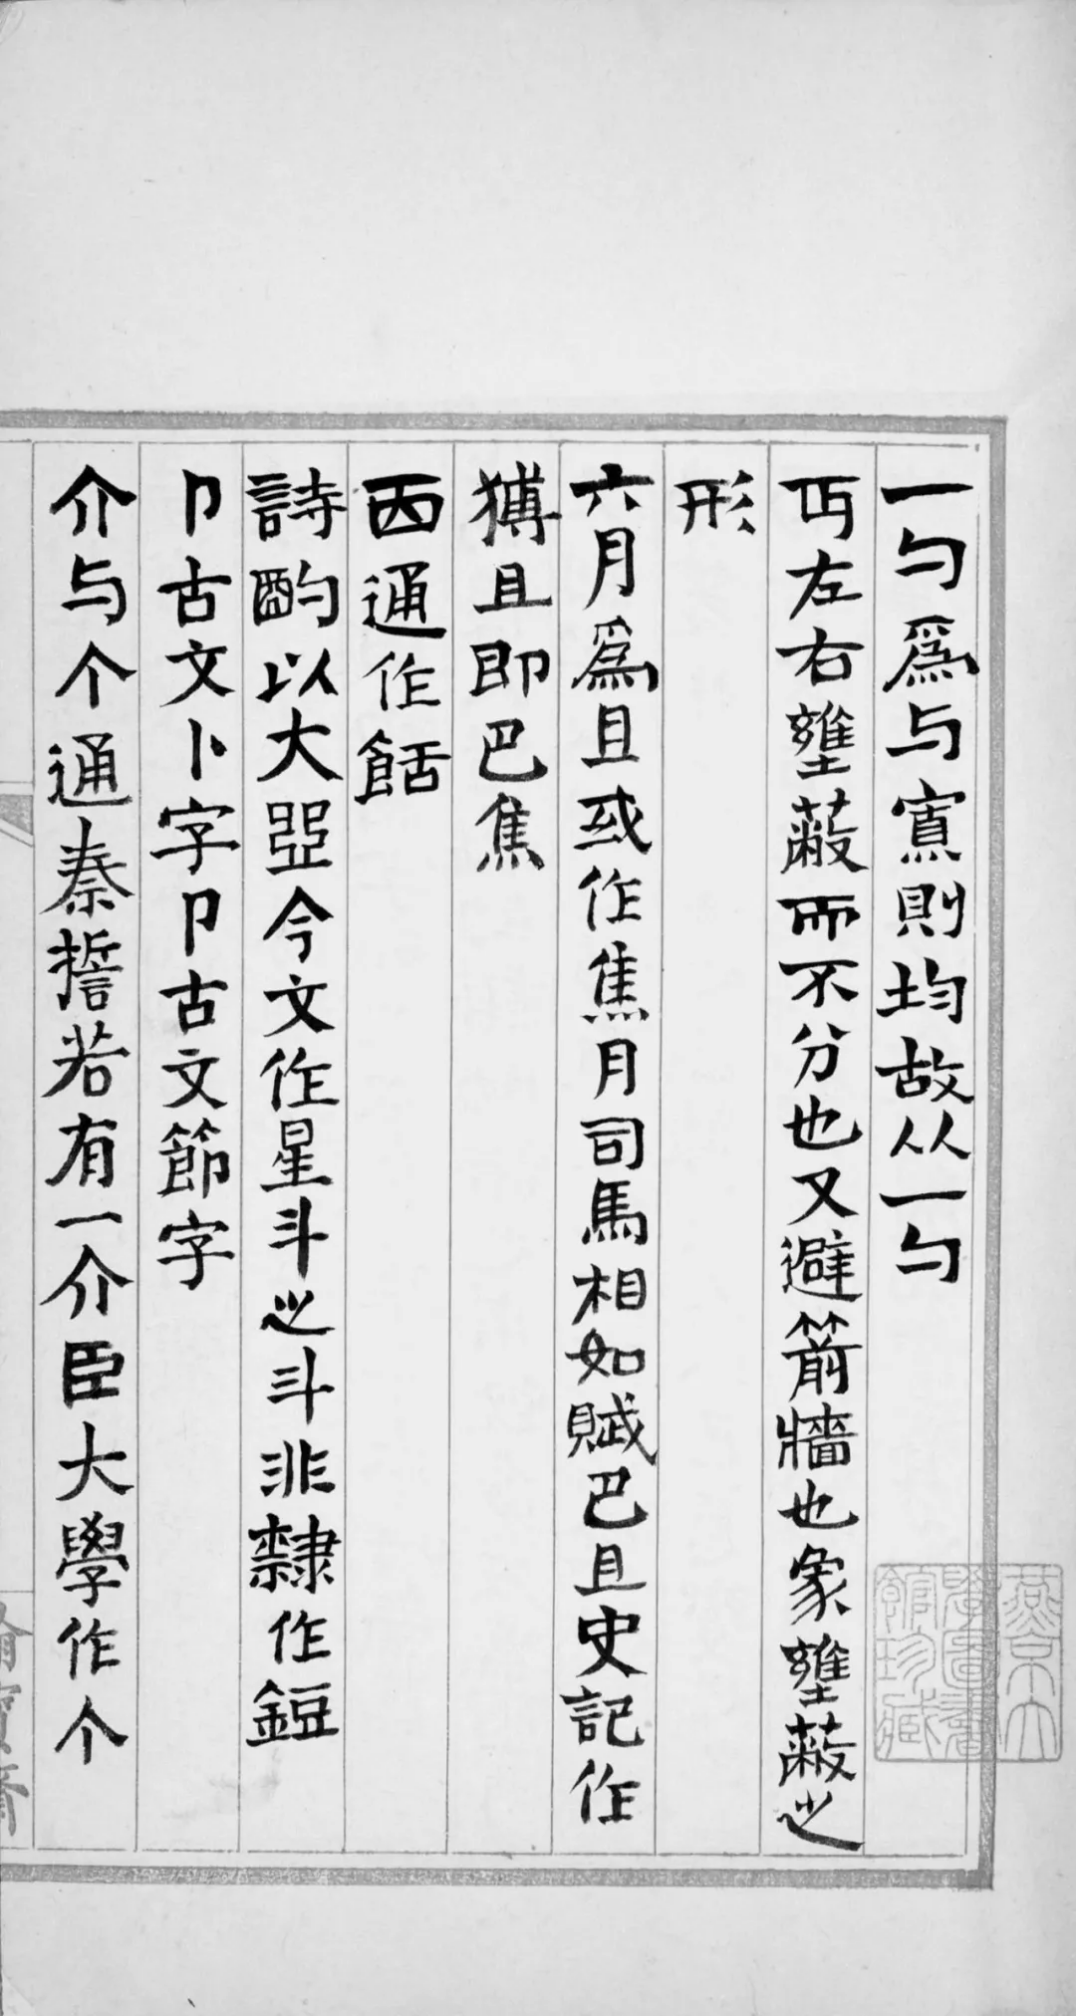 一勺爲与賔則均故从一勺
丏左右壅蔽而不分也又避箭牆也象壅蔽之
形
六月爲且或作焦月司馬相如賦巴且史記作
猼且即巴焦
㐁通作餂
詩酌以大斗今文作星斗之斗非隸作鋀
卩古文卜字卩古文節字
介与个通秦誓若有一介臣大學作个
燕京大
學圖書
館珍藏